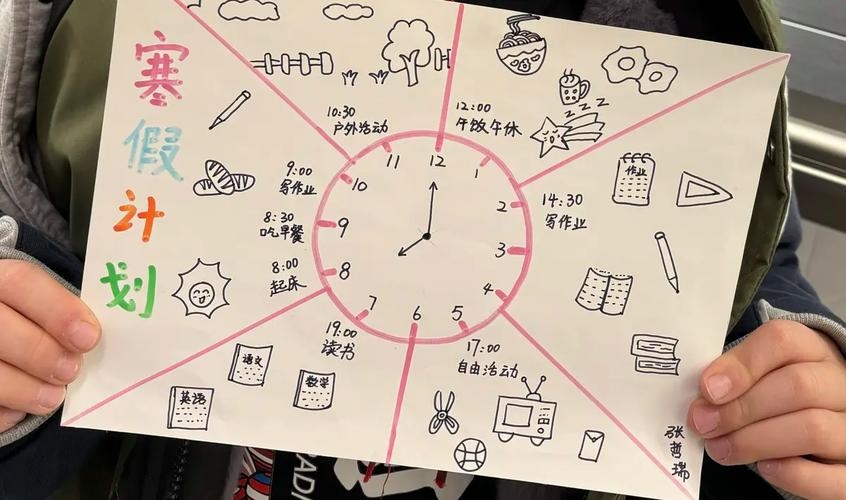 寒
假
计
划
10:30
户外活动
12:00
午饭午休
zzz
9:00
写作业
8:30
吃早餐
8:00
起床
14:30
写作业
作业
12
1
2
3
4
5
6
7
8
9
10
11
19:00
读书
17:00
自由活动
语文
数学
英语
张
哲
瑞